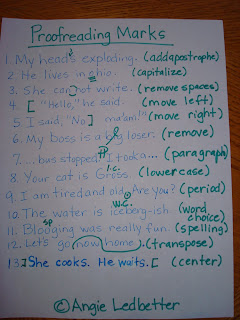 Proofreading Marks
1. My heads exploding. (add apostrophe)
2. He lives in ohio. (capitalize)
3. She can not write. (remove spaces)
4. [ "Hello," he said. (move left)
5. I said, "No ] ma'am." (move right)
6. My boss is a big loser. (remove)
7. ... bus stopped. ¶ I took a... (paragraph)
l.c.
8. Your cat is Gross. (lowercase)
9. I am tired and old. Are you? (period)
w.c.
10. The water is iceberg-ish. (word choice)
sp
11. Blooging was really fun. (spelling)
12. Let's go now home. (transpose)
13. ] She cooks. He waits. [ (center)
© Angie Ledbetter